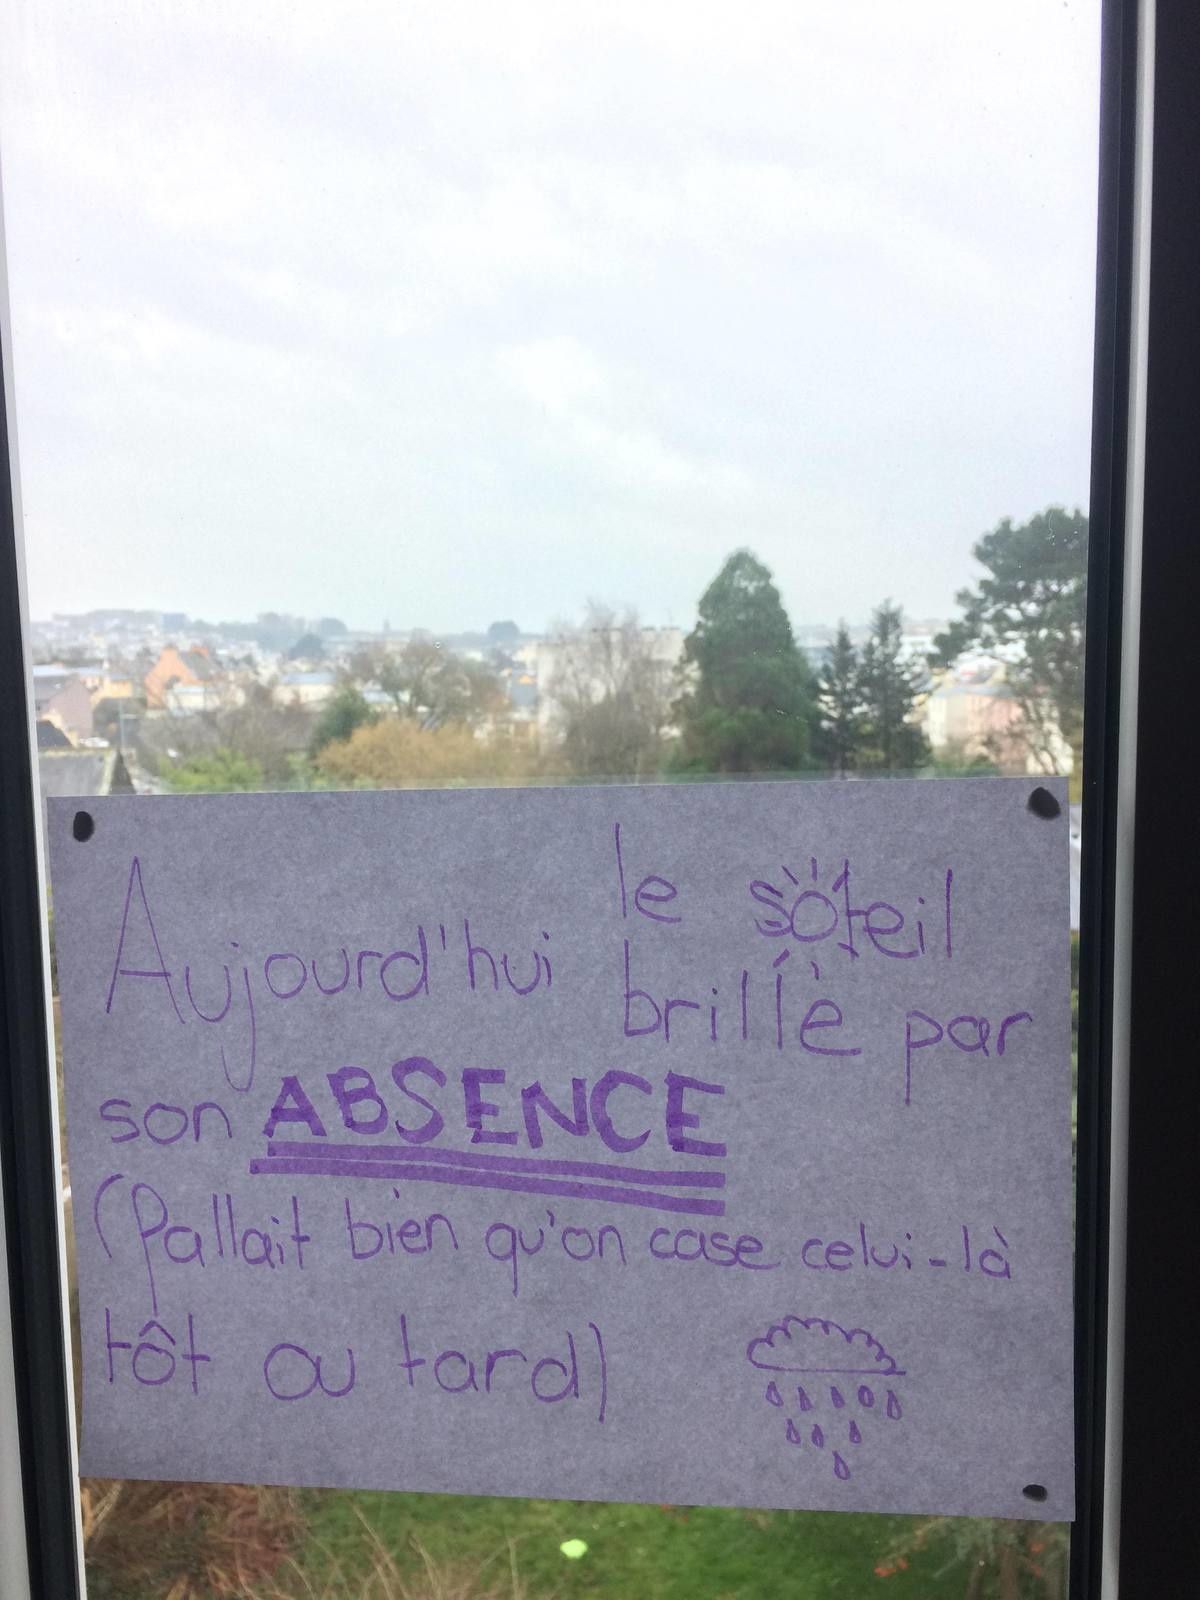 Aujourd'hui le soleil
brille par
son ABSENCE
(Fallait bien qu'on case celui-là
tôt ou tard)